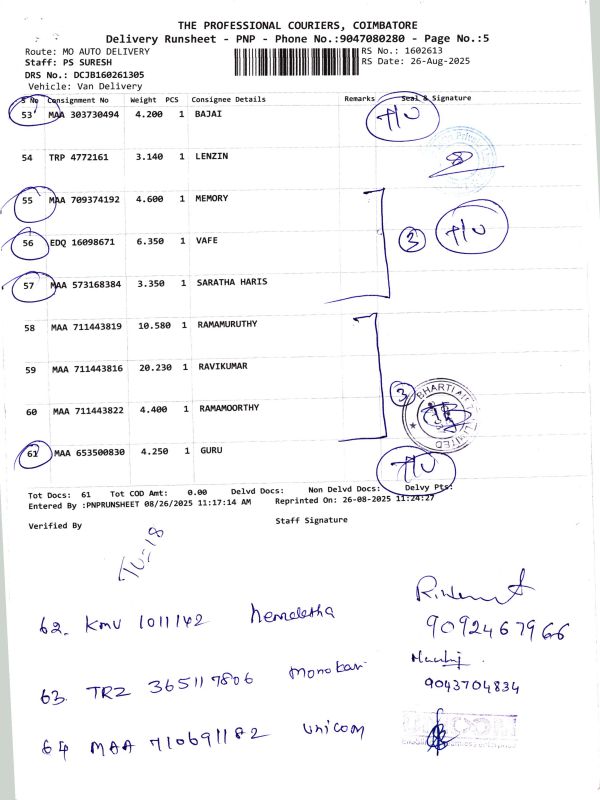 THE PROFESSIONAL COURIERS, COIMBATORE
Delivery Runsheet - PNP - Phone No.:9047080280 - Page No.:5
Route: MO AUTO DELIVERY RS No.: 1602613
Staff: PS SURESH RS Date: 26-Aug-2025
DRS No.: DCJB160261305
Vehicle: Van Delivery
S No Consignment No Weight PCS Consignee Details Remarks Seal & Signature
53 MAA 303730494 4.200 1 BAJAI T/U
54 TRP 4772161 3.140 1 LENZIN
55 MAA 709374192 4.600 1 MEMORY
56 EDQ 16098671 6.350 1 VAFE 3 T/U
57 MAA 573168384 3.350 1 SARATHA HARIS
58 MAA 711443819 10.580 1 RAMAMURUTHY
59 MAA 711443816 20.230 1 RAVIKUMAR
3 BHARTI LIMITED
60 MAA 711443822 4.400 1 RAMAMOORTHY
61 MAA 653500830 4.250 1 GURU T/U
Tot Docs: 61 Tot COD Amt: 0.00 Delvd Docs: Non Delvd Docs: Delvy Pts:
Entered By :PNPRUNSHEET 08/26/2025 11:17:14 AM Reprinted On: 26-08-2025 11:24:27
Verified By Staff Signature
TU-18
62. KMU 1011142 Hemaletha
9092467966
63. TRZ 365117806 Monokari
9043704834
64 MAA 710691182 Unicom